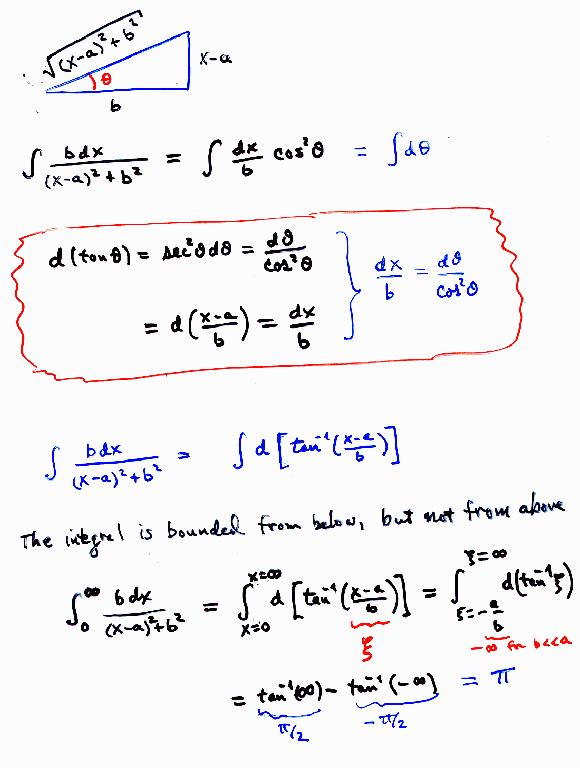 √((x-a)²+b²)
x-a
θ
b
∫ b dx / ((x-a)²+b²) = ∫ dx/b cos²θ = ∫dθ
d(tanθ) = sec²θdθ = dθ/cos²θ
dx/b = dθ/cos²θ
= d((x-a)/b) = dx/b
∫ b dx / ((x-a)²+b²) = ∫ d[tan⁻¹((x-a)/b)]
The integral is bounded from below, but not from above
∫₀^∞ b dx / ((x-a)²+b²) = ∫_{x=0}^{x=∞} d[tan⁻¹((x-a)/b)] = ∫_{ξ=-a/b}^{ξ=∞} d(tan⁻¹ξ)
ξ
-∞ for b<<a
= tan⁻¹(∞) - tan⁻¹(-∞) = π
π/2
-π/2